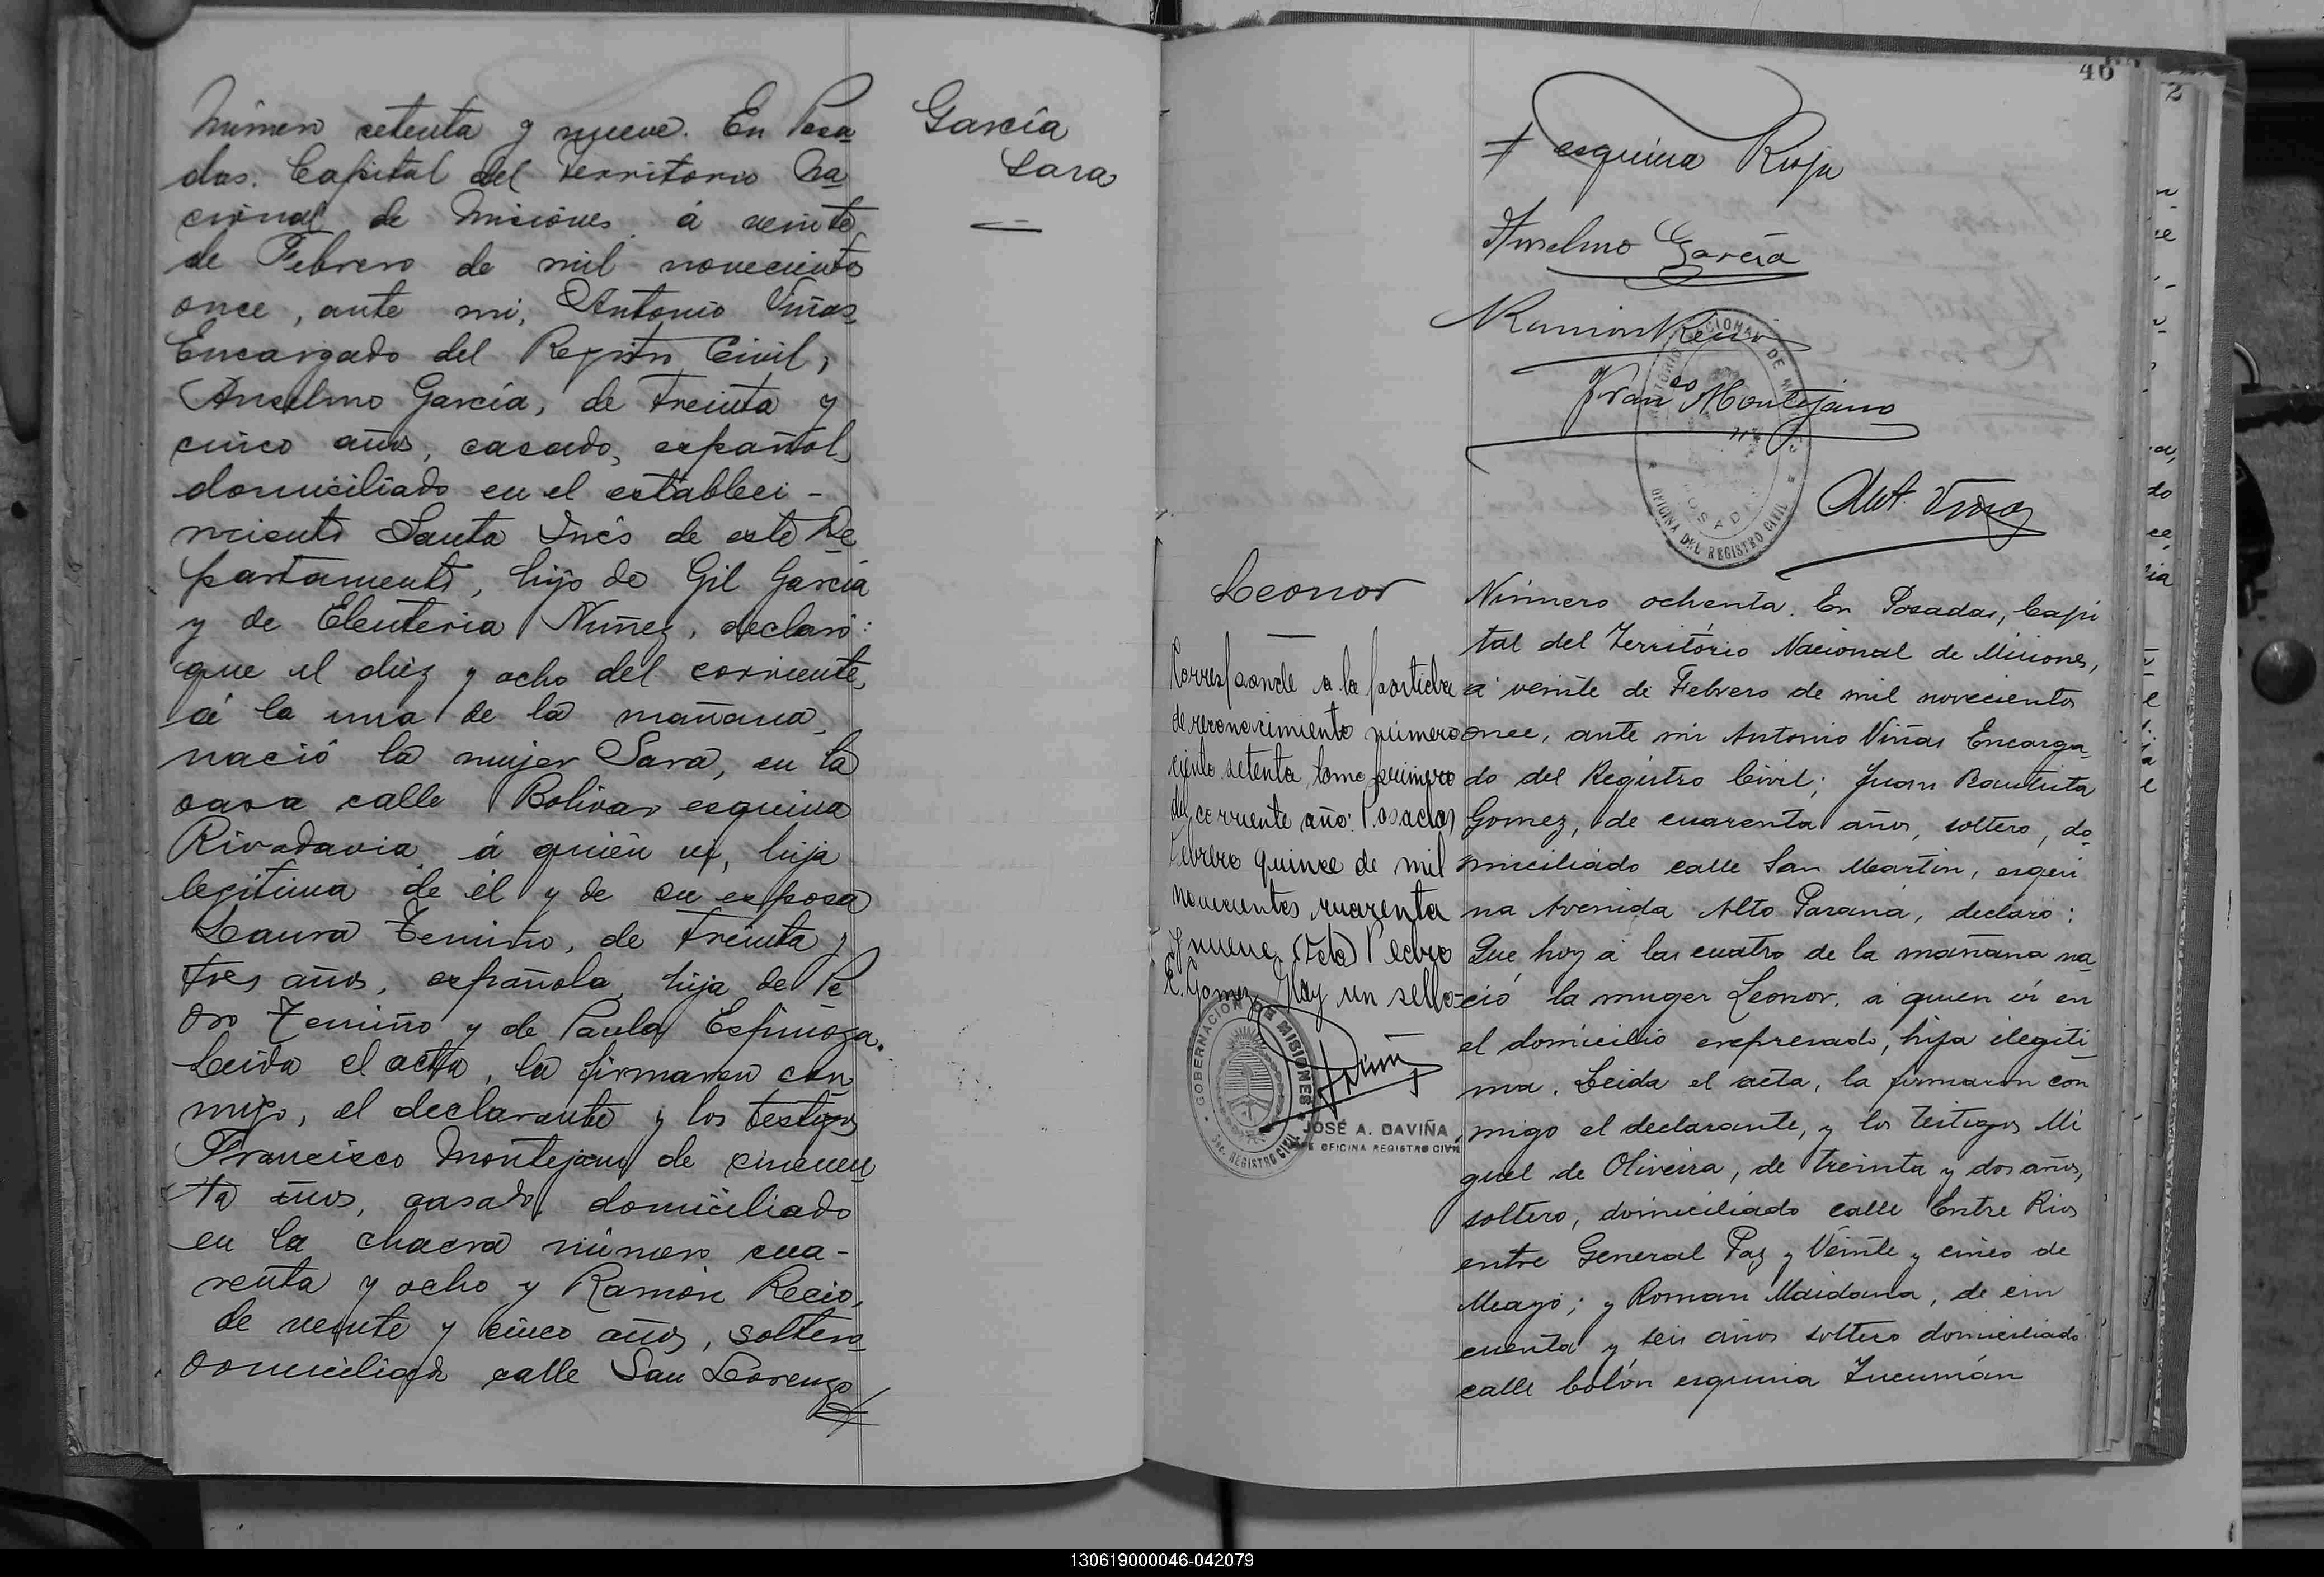 Número setenta y nueve. En Posa
das. Capital del Territorio Na
cional de Misiones á veinte
de Febrero de mil novecientos
once, ante mi, Antonio Viñas
Encargado del Registro Civil,
Anselmo García, de treinta y
cinco años, casado, español,
domiciliado en el estableci-
miento Santa Inés de este De
partamento, hijo de Gil García
y de Eleuteria Nuñez, declaró:
que el diez y ocho del corriente,
á la una de la mañana,
nació la mujer Sara, en la
casa calle Bolivar esquina
Rivadavia á quién vi, hija
legitima de él y de su esposa
Laura Temiño, de treinta y
tres años, española, hija de Pe
dro Temiño y de Paula Espinoza.
Leida el acta, la firmaron con
migo, el declarante y los testigos
Francisco Montejano de cincuen
ta años, casado, domiciliado
en la chacra número cua-
renta y ocho y Ramón Recio,
de veinte y cinco años, soltero
domiciliado calle San Lorenzo
García
Sara
46
esquina Rioja
Anselmo García
Ramon Recio
Franco Montejano
Ant. Viñas
OFICINA DEL REGISTRO CIVIL
POSADAS
Leonor
Corresponde a la partida
de reconocimiento número
ciento setenta, tomo primero
del corriente año. Posadas
Febrero quince de mil
novecientos cuarenta
y nueve. (Fdo) Pedro
E. Gomez. Hay un sello-
GOBERNACION DE MISIONES
Sec. REGISTRO CIVIL
JOSÉ A. DAVIÑA
JEFE OFICINA REGISTRO CIVIL
Número ochenta. En Posadas, Capi
tal del Território Nacional de Misiones,
á veinte de Febrero de mil novecientos
once, ante mi Antonio Viñas Encarga
do del Registro Civil; Juan Bautista
Gomez, de cuarenta años, soltero, do
miciliado calle San Martin, esqui
na Avenida Alto Paraná, declaró:
Que hoy á las cuatro de la mañana na
ció la muger Leonor, á quien vi en
el domicilió expresado, hija ilegiti
ma. Leida el acta, la firmaron con
migo el declarante, y los testigos Mi
guel de Oliveira, de treinta y dos años,
soltero, domiciliado calle Entre Rios
entre General Paz y Veinte y cinco de
Mayo; y Roman Maidana, de cin
cuenta y seis años soltero domiciliado
calle Colón esquina Tucumán
130619000046-042079